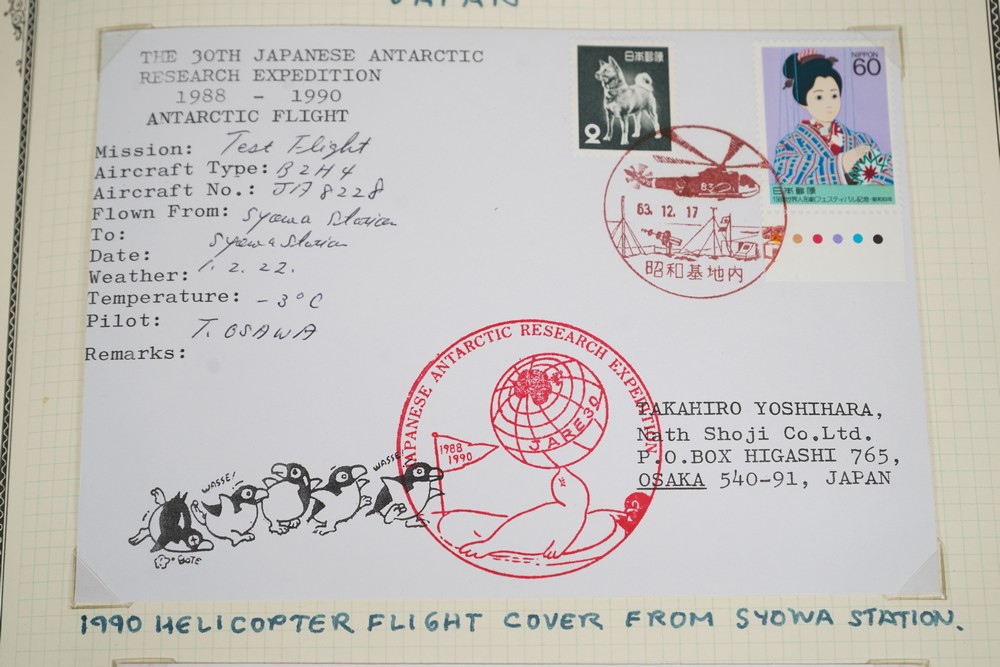 JAPAN
THE 30TH JAPANESE ANTARCTIC
RESEARCH EXPEDITION
1988 - 1990
ANTARCTIC FLIGHT
Mission: Test Flight
Aircraft Type: B2H4
Aircraft No.: JA8228
Flown From: Syowa Station
To: Syowa Station
Date: 1. 2. 22.
Weather:
Temperature: -3°C
Pilot: T. OSAWA
Remarks:
日本郵便
2
NIPPON
60
日本郵便
83
63. 12. 17
昭和基地内
JAPANESE ANTARCTIC RESEARCH EXPEDITION
JARE30
1988
1990
TAKAHIRO YOSHIHARA,
Nath Shoji Co.Ltd.
P.O.BOX HIGASHI 765,
OSAKA 540-91, JAPAN
WASSE!
WASSE!
BOTE
1990 HELICOPTER FLIGHT COVER FROM SYOWA STATION.